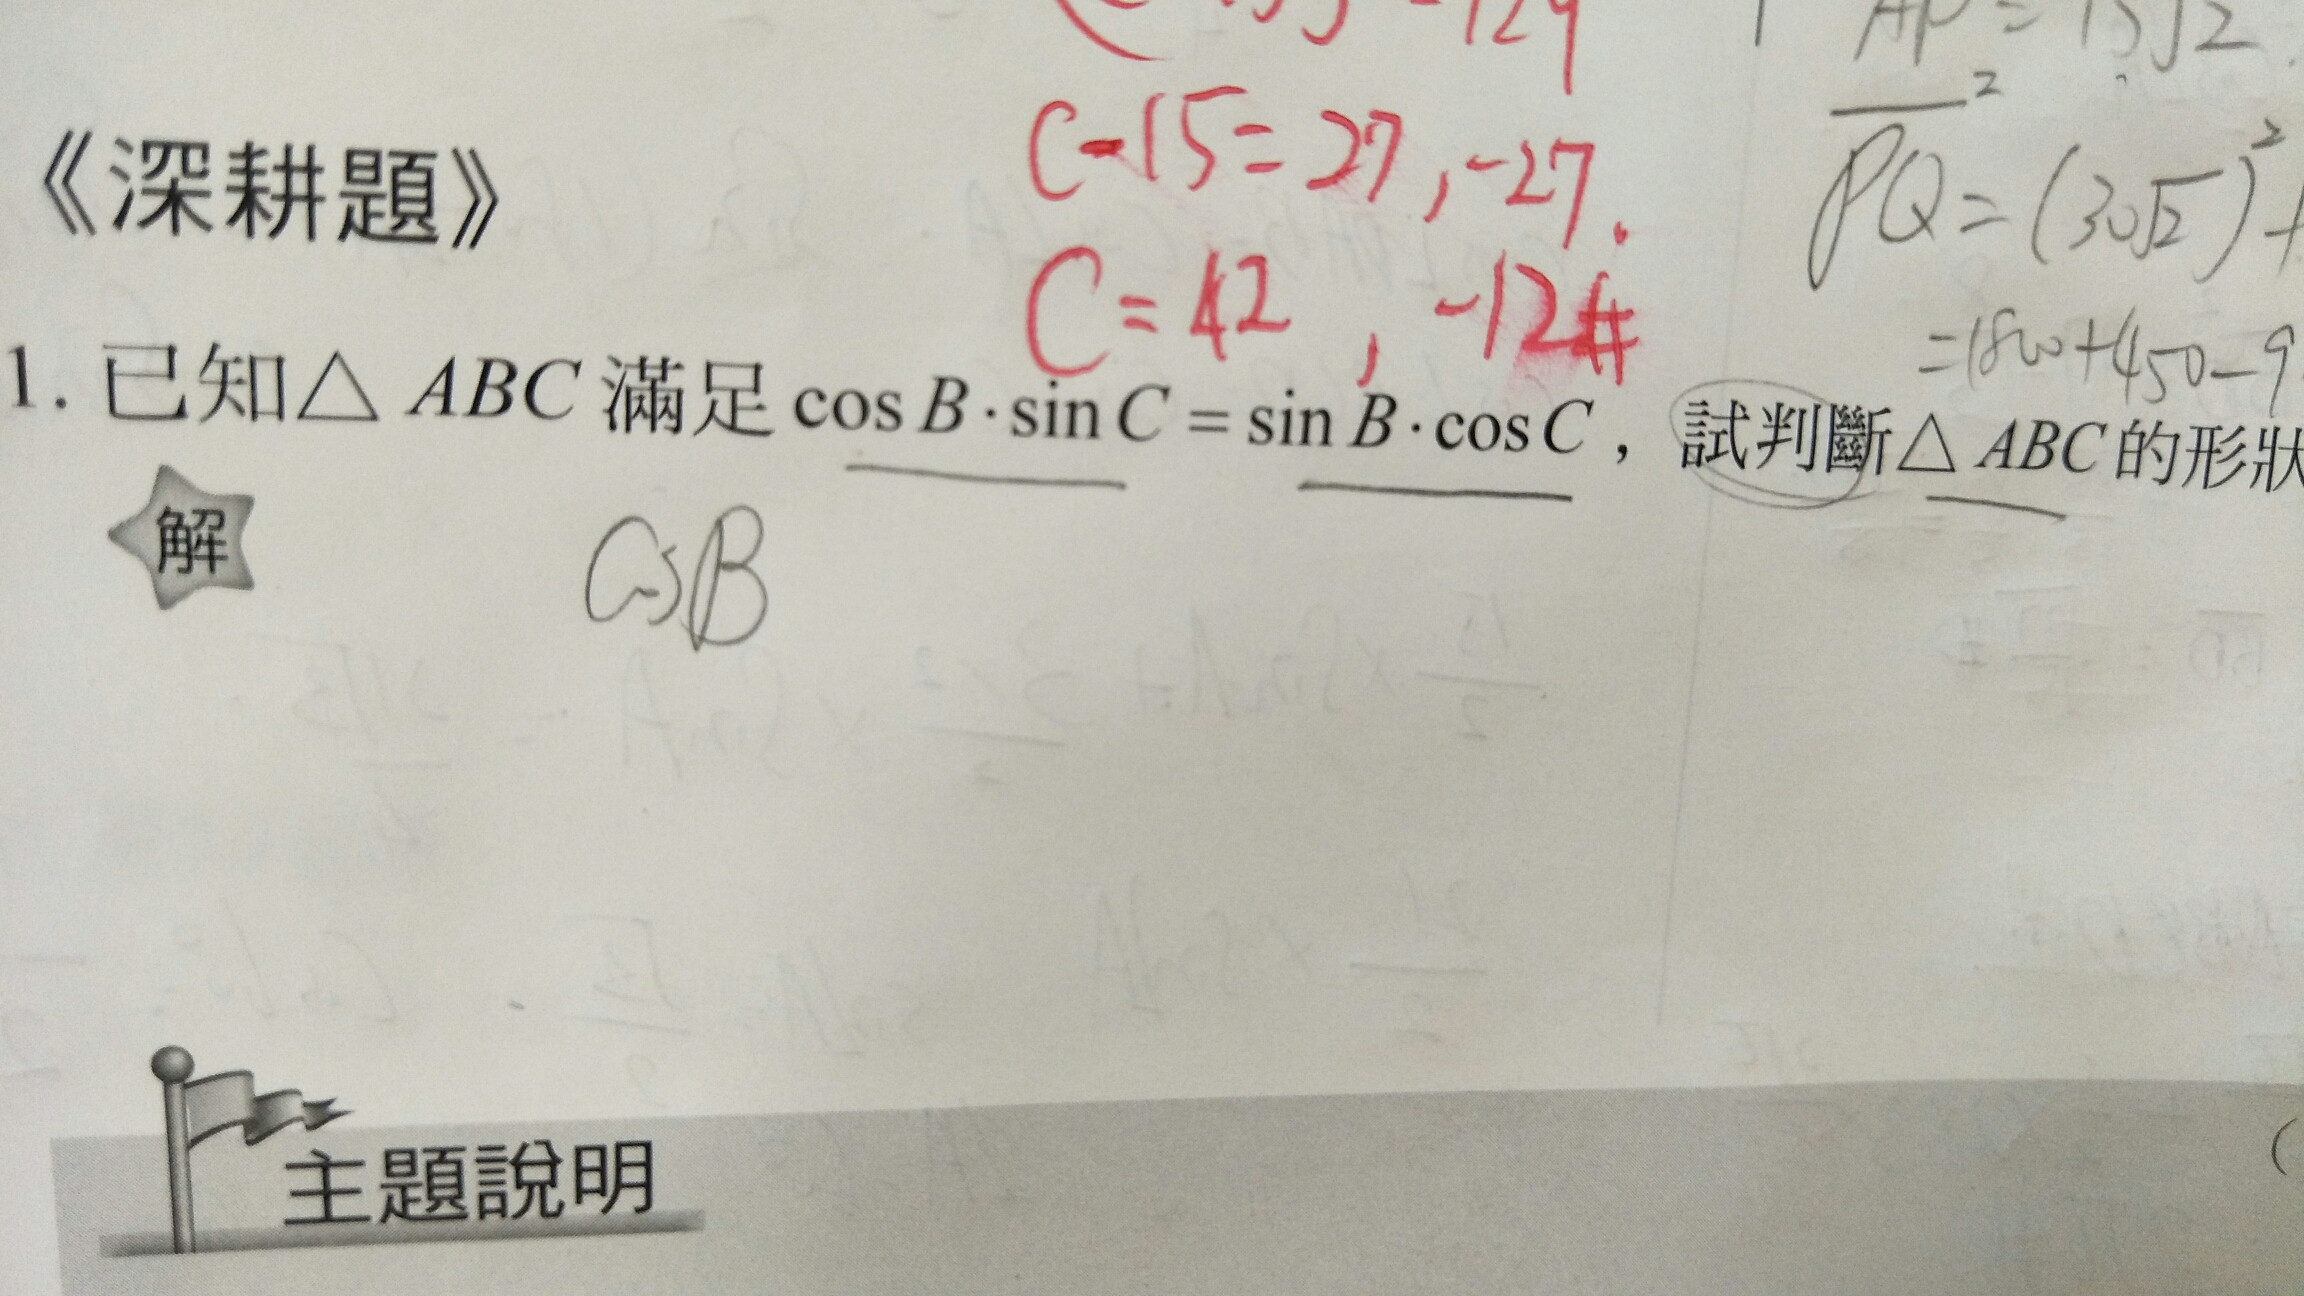 C-15=27,-27.
C=42,-12#
PQ²=(30√2)²+
=1800+450-9
《深耕題》
1. 已知△ABC滿足cosB·sinC=sinB·cosC，試判斷△ABC的形狀
解
cosB
主題說明